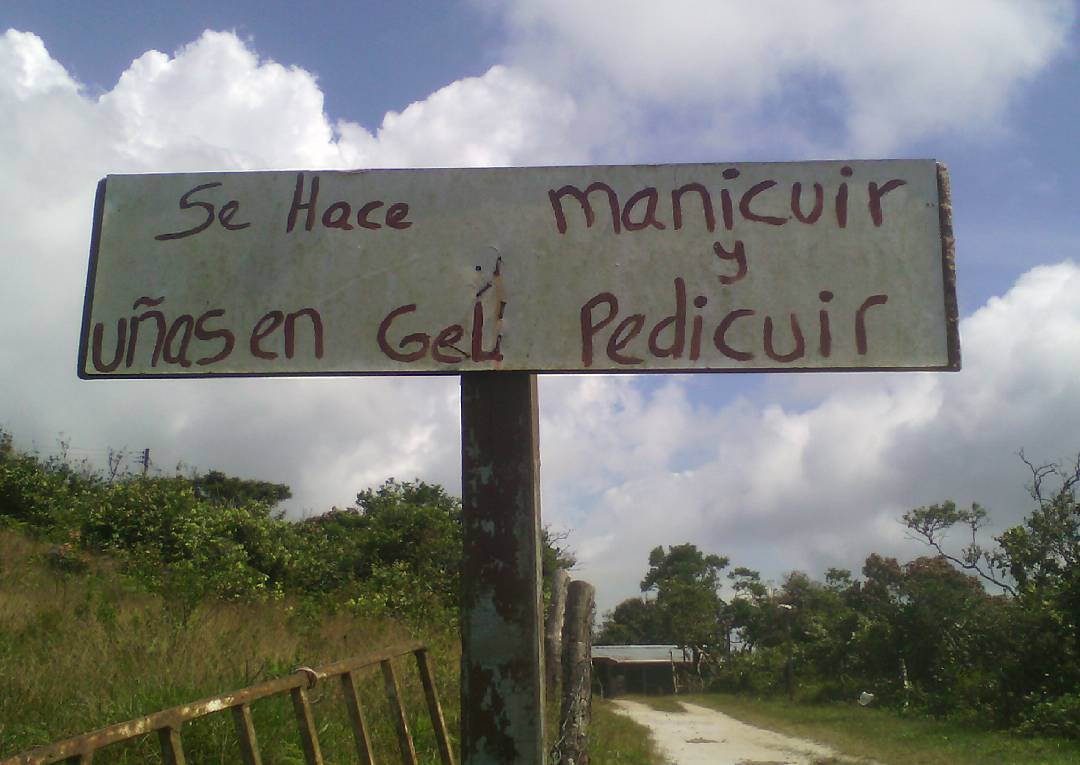 Se Hace manicuir
y
uñas en Gel Pedicuir